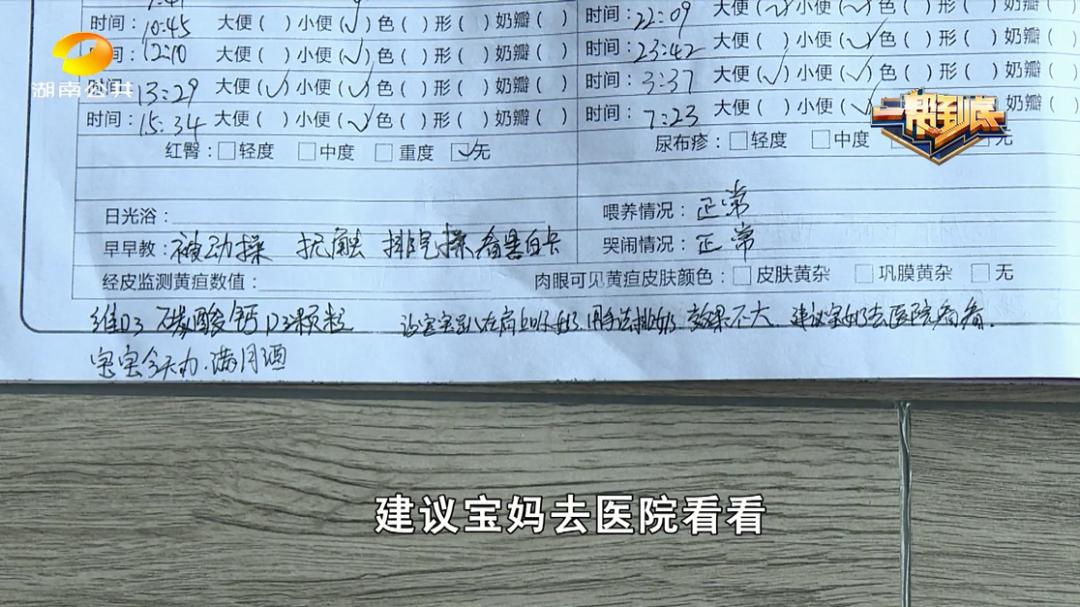 时间：10:45 大便（ ）小便（✓）色（ ）形（ ）奶瓣（ ）
时间：12:10 大便（ ）小便（✓）色（ ）形（ ）奶瓣（ ）
时间：13:29 大便（✓）小便（✓）色（ ）形（ ）奶瓣（ ）
时间：15:34 大便（ ）小便（✓）色（ ）形（ ）奶瓣（ ）
红臀：□轻度 □中度 □重度 ☑无
时间：22:09 大便（✓）小便（✓）色（ ）形（ ）奶瓣（ ）
时间：23:42 大便（ ）小便（✓）色（ ）形（ ）奶瓣（ ）
时间：3:37 大便（✓）小便（✓）色（ ）形（ ）奶瓣（ ）
时间：7:23 大便（ ）小便（✓）色（ ）形（ ）奶瓣（ ）
尿布疹：□轻度 □中度 无
日光浴：
喂养情况：正常
早早教：被动操 抚触 排气操 看黑白卡
哭闹情况：正常
经皮监测黄疸数值：
肉眼可见黄疸皮肤颜色：□皮肤黄杂 □巩膜黄杂 □无
维D3 碳酸钙D3颗粒
效果不大，建议宝妈去医院看看．
宝宝今天办满月酒
湖南公共
一帮到底
建议宝妈去医院看看